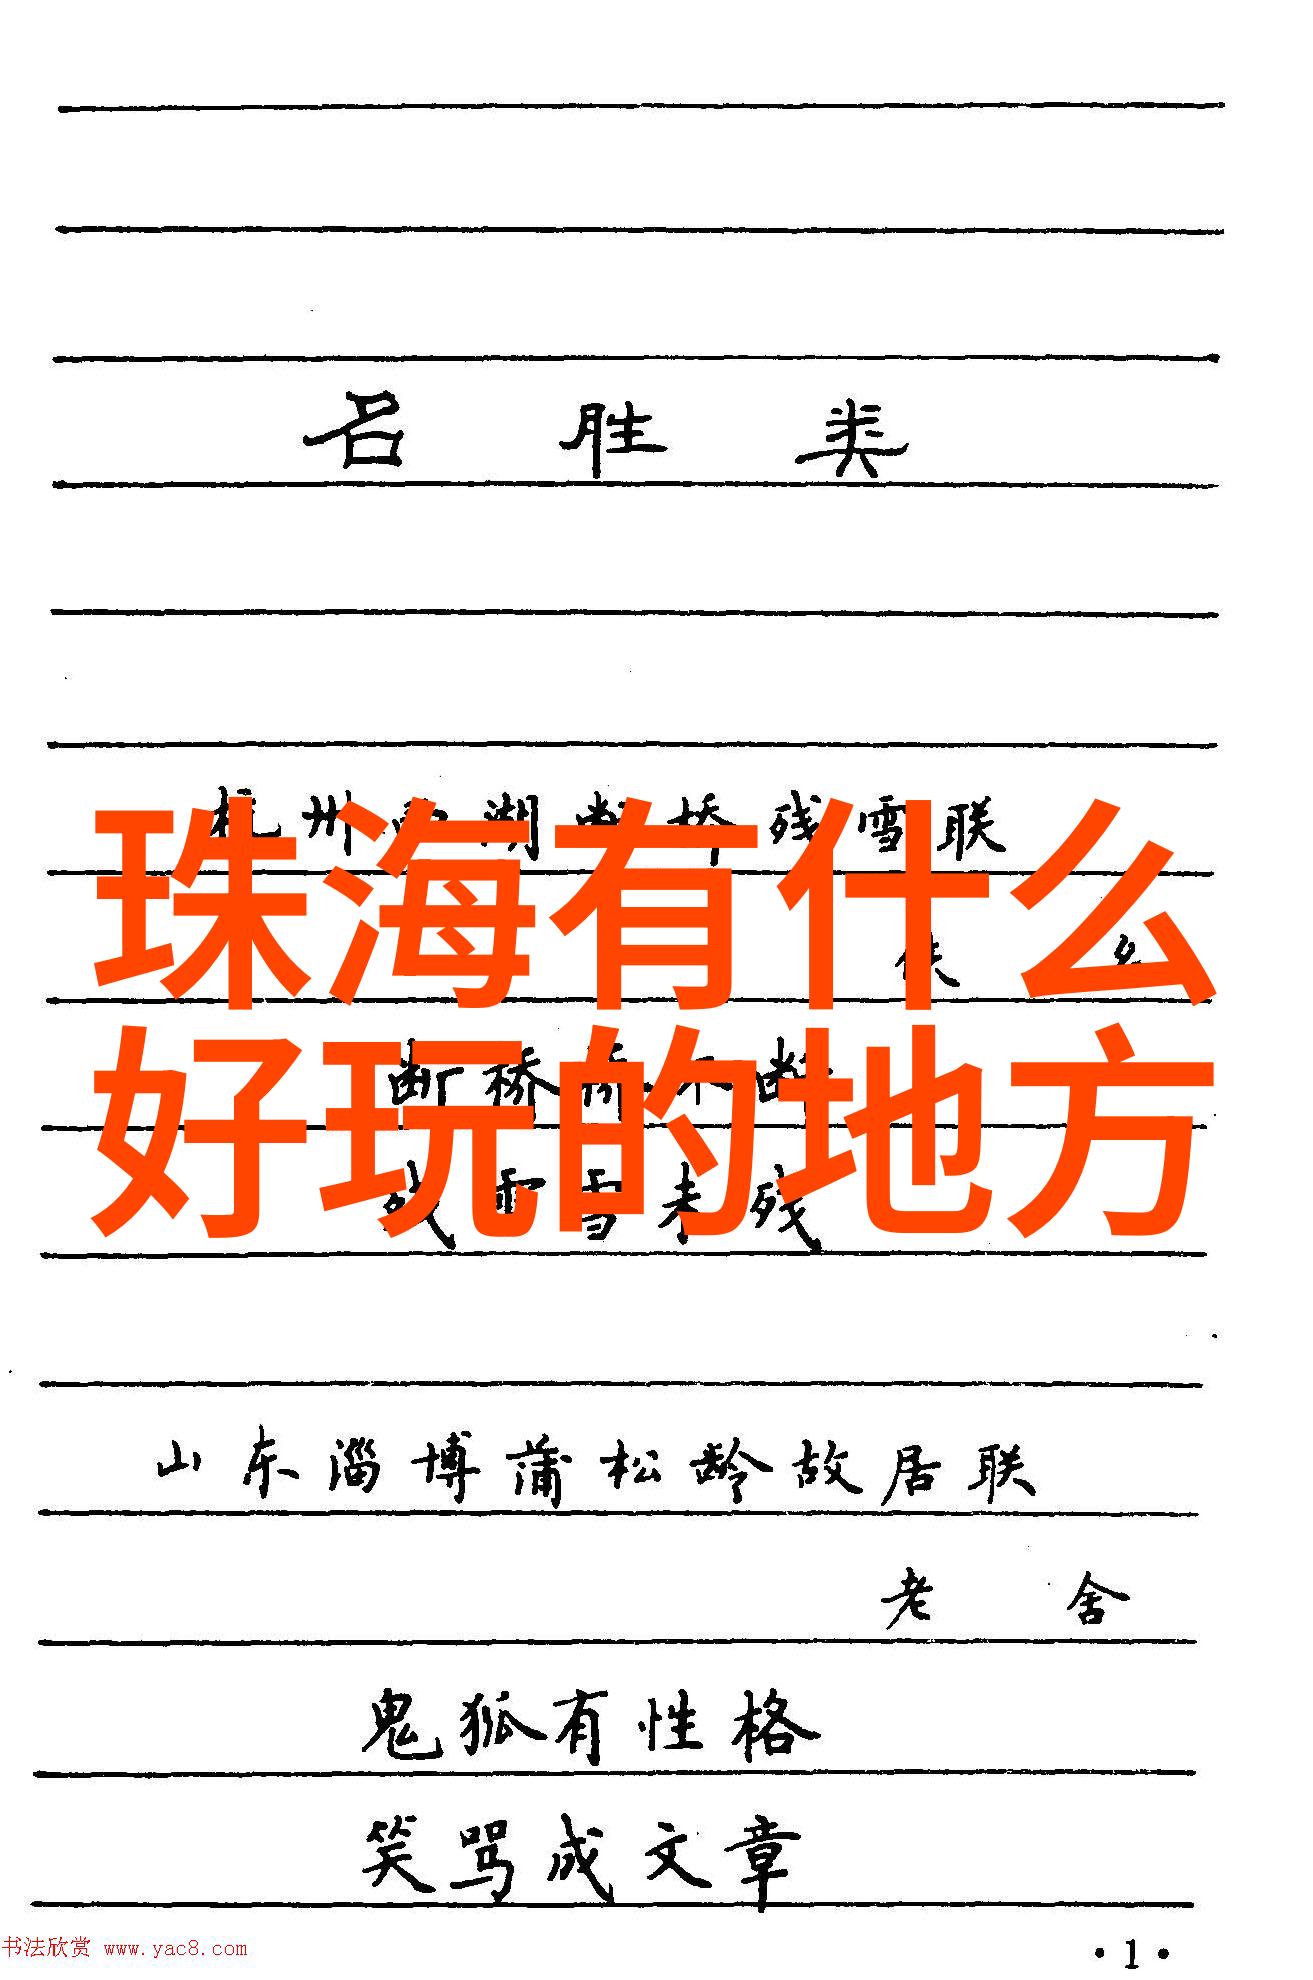 名胜类
杭州西湖断桥残雪联
珠海有什么
好玩的地方
断桥桥不断
残雪雪未残
山东淄博蒲松龄故居联
老舍
鬼狐有性格
笑骂成文章
书法欣赏 www.yac8.com
·1·